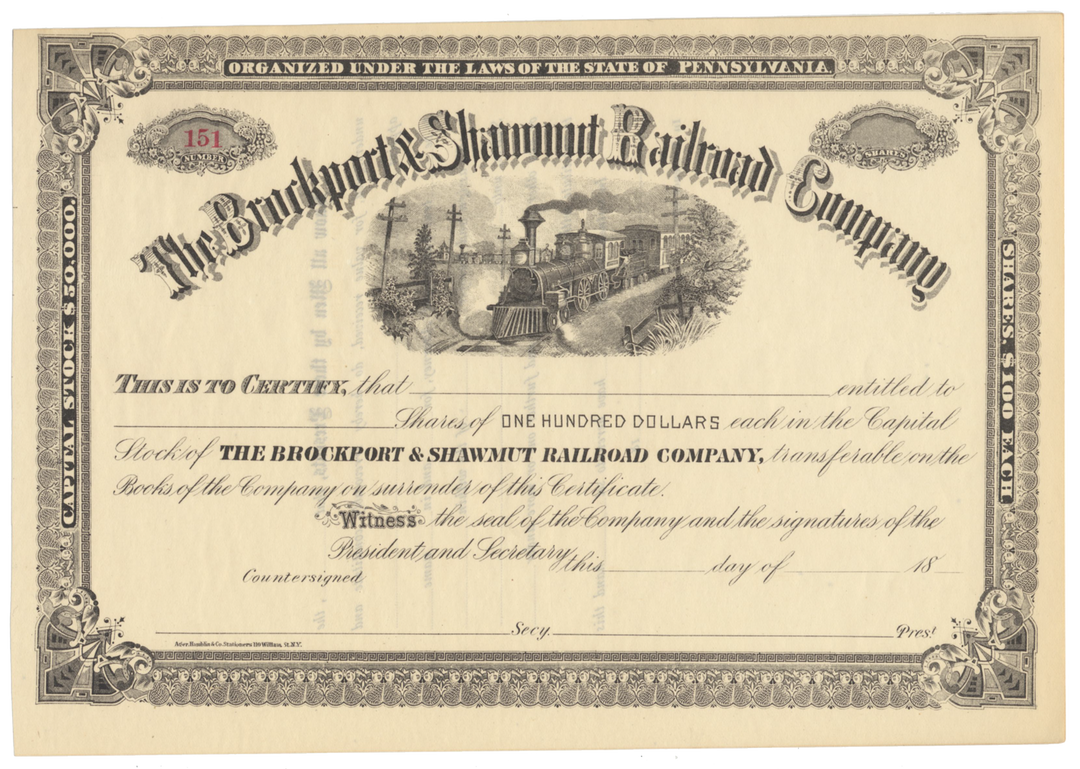 ORGANIZED UNDER THE LAWS OF THE STATE OF PENNSYLVANIA
151
NUMBER
SHARES
The Brockport & Shawmut Railroad Company
CAPITAL STOCK $50,000.
SHARES, $100 EACH
THIS IS TO CERTIFY, that entitled to
Shares of ONE HUNDRED DOLLARS each in the Capital
Stock of THE BROCKPORT & SHAWMUT RAILROAD COMPANY, transferable on the
Books of the Company on surrender of this Certificate.
Witness the seal of the Company and the signatures of the
President and Secretary this day of 18
Countersigned
Secy. Pres!
& Co. Stationers William St. N.Y.